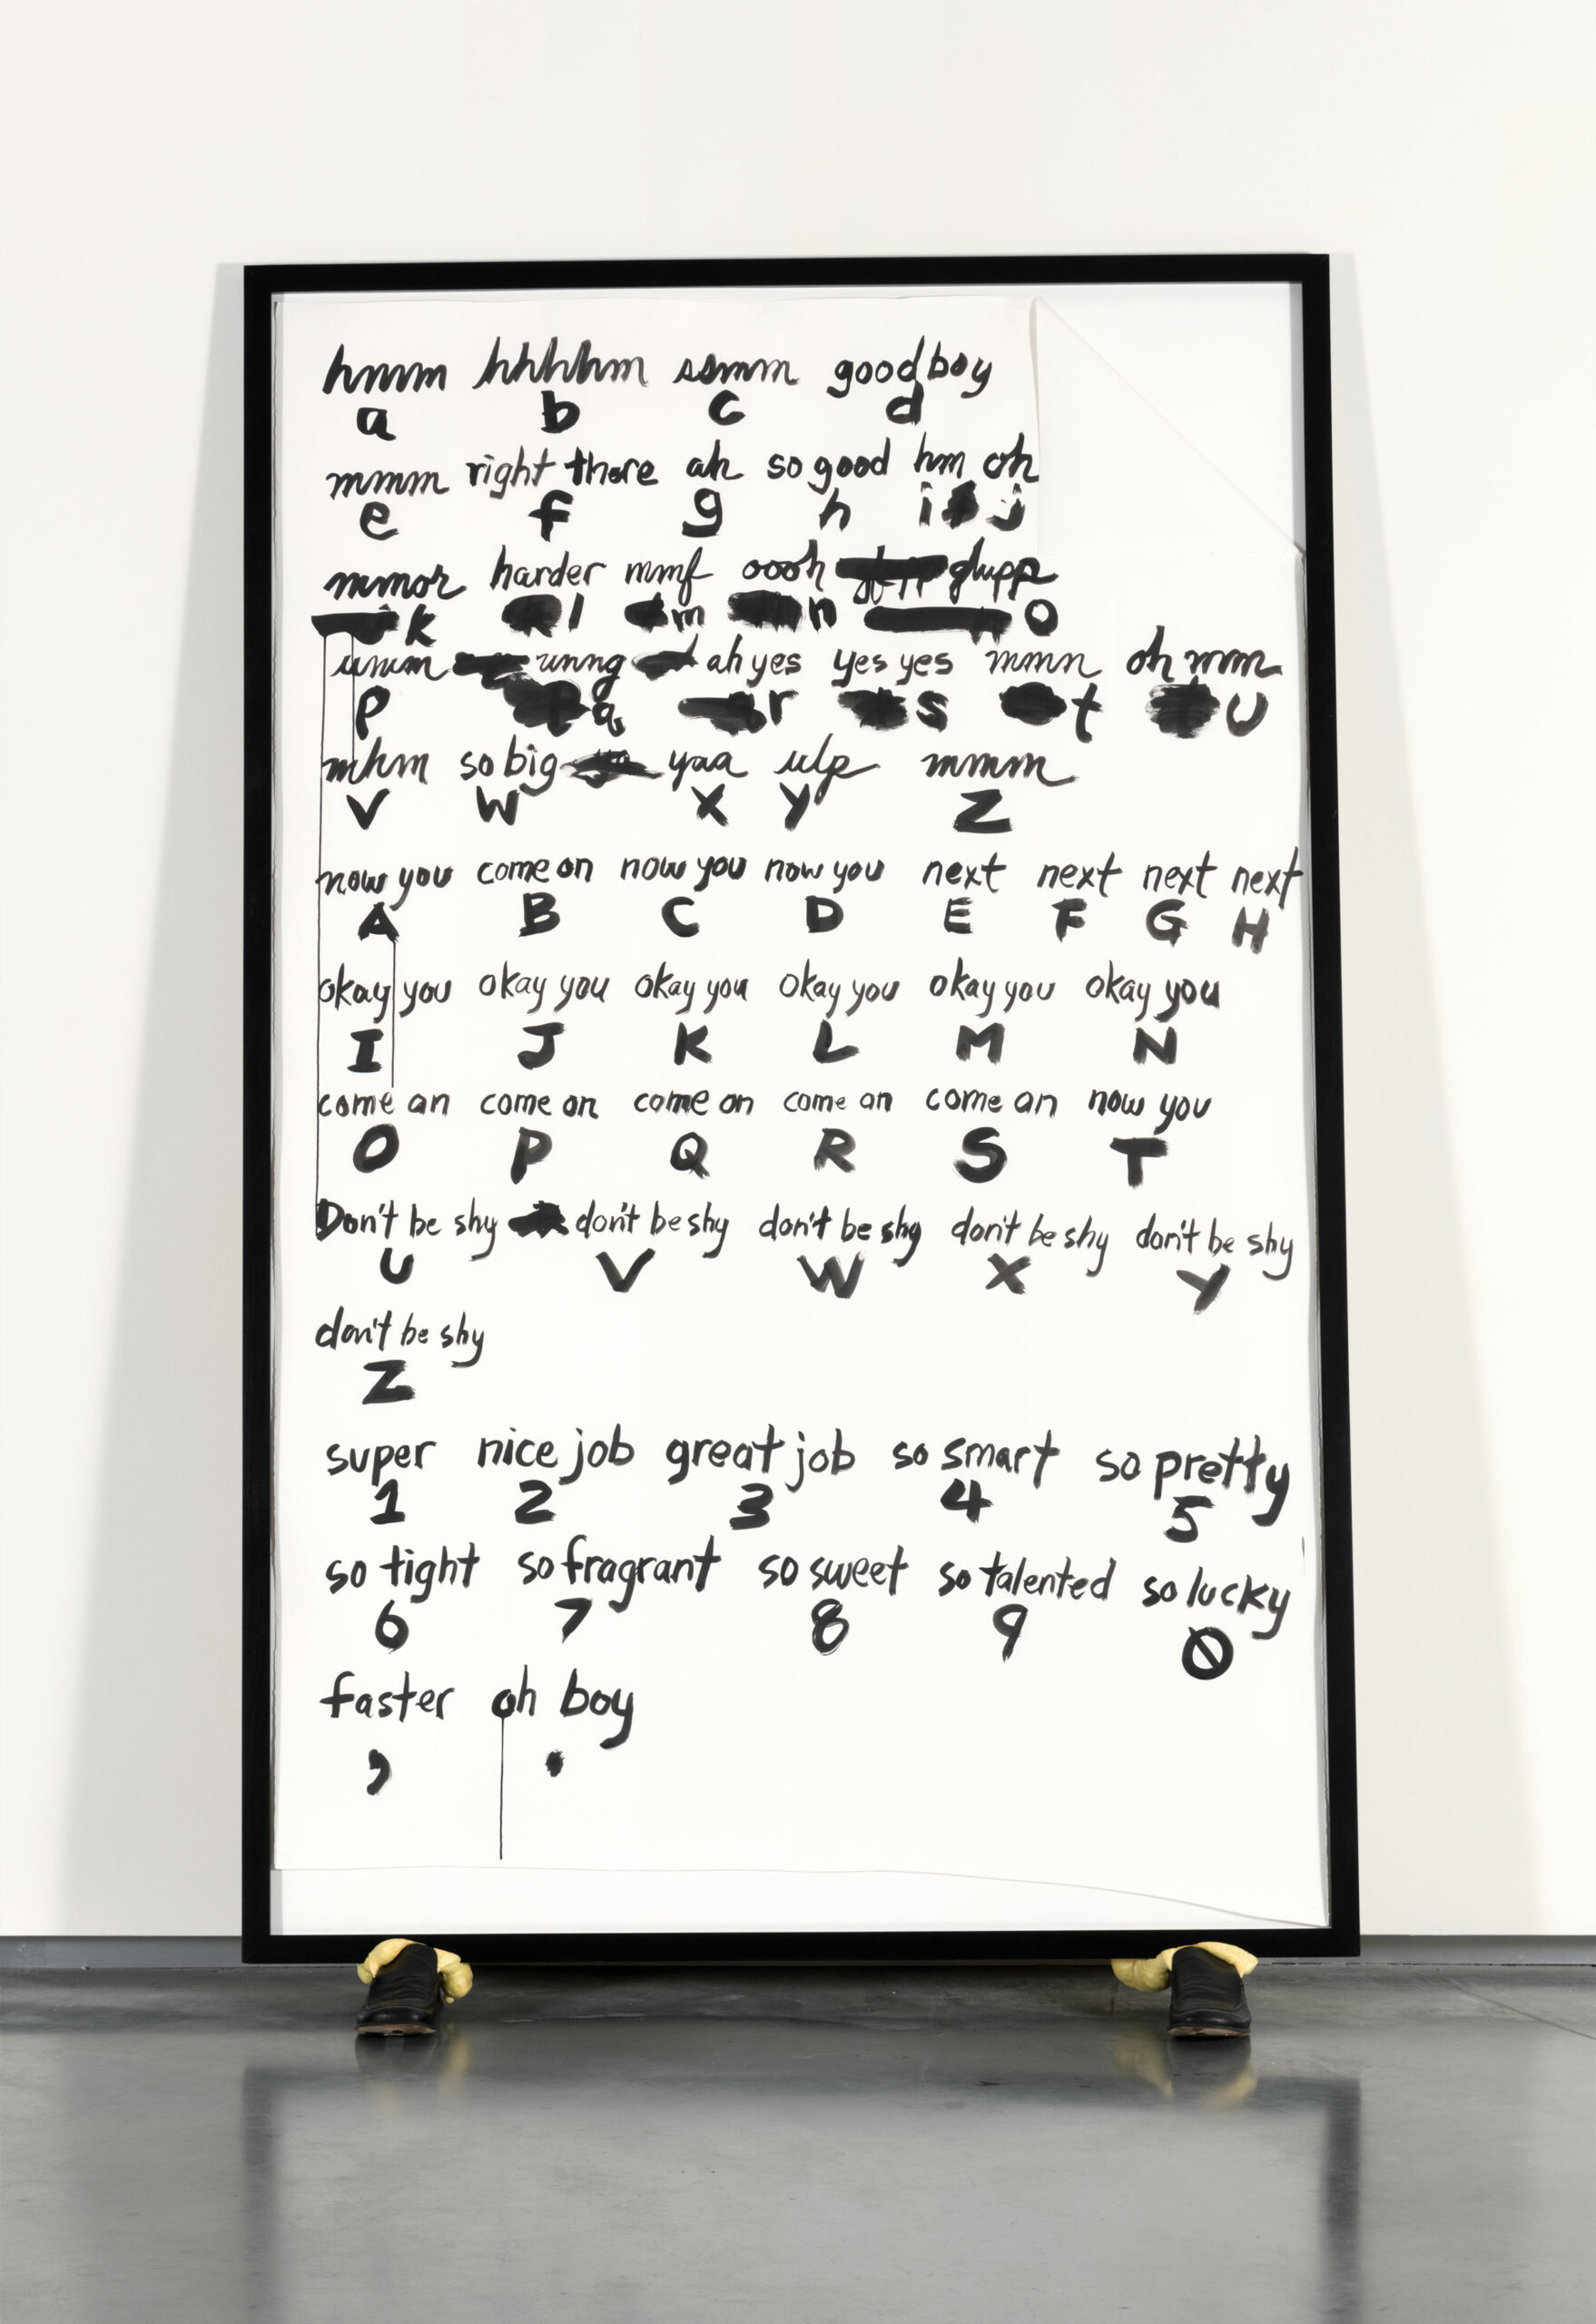 hmm hhhhm ssmm good boy
a b c d
mmm right there ah so good hm oh
e f g h i j
mmor harder mmf oooh glupp
k l m n o
umm unng ah yes yes yes mmn oh mm
p q r s t U
mhm so big yaa ulp mmm
V W X Y Z
now you come on now you now you next next next next
A B C D E F G H
okay you okay you okay you okay you okay you okay you
I J K L M N
come an come on come on come an come an now you
O P Q R S T
Don't be shy don't be shy don't be shy don't be shy don't be shy
U V W X Y
don't be shy
Z
super nice job great job so smart so pretty
1 2 3 4 5
so tight so fragrant so sweet so talented so lucky
6 7 8 9 0
faster oh boy
, .